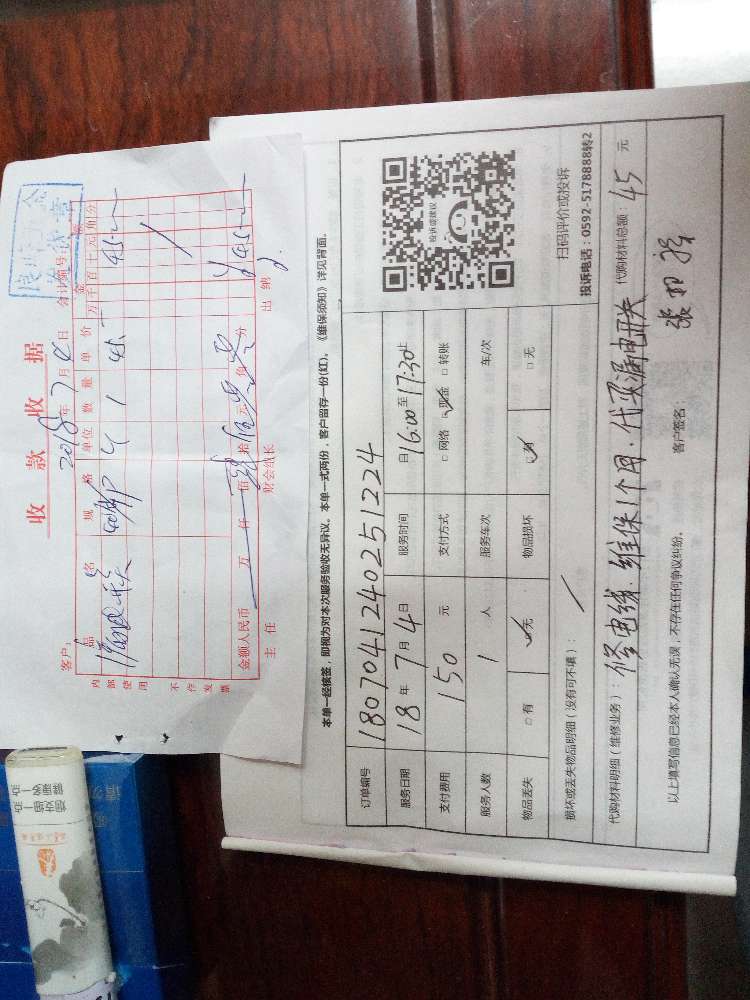 收款收据
2018年7月4日
会计编号:
客户:
品名 规格 单位 数量 单价 金额
万千百十元角分
漏电开关 个 1 45
金额人民币 万 仟 佰 拾 元 角 分
主任 财会组长 出纳
内部使用 不存发票
本单一经核签,即视为对本次服务验收无异议。本单一式两份,客户留存一份(红)。《维保须知》详见背面。
订单编号 1807041240251224
服务日期 18年7月4日 服务时间 日16:00至17:30止
支付费用 150 元 支付方式 □网络 ☑现金 □转账
服务人数 1 人 服务车次 车/次
物品丢失 □有 ☑无 物品损坏 ☑有 □无
损坏或丢失物品明细(没有可不填):
代购材料明细(维修业务):修电线.维保1个月.代买漏电开关 代购材料总额:45 元
以上填写信息已经本人确认无误,不存在任何争议纠纷。
客户签名:
投诉或建议
扫码评价或投诉
投诉电话:0592-5178888转2